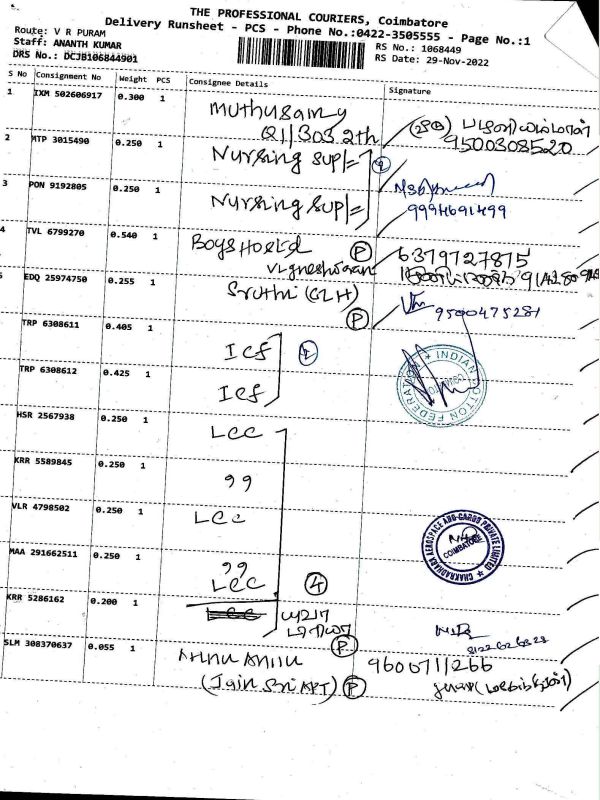 THE PROFESSIONAL COURIERS, Coimbatore
Delivery Runsheet - PCS - Phone No.:0422-3505555 - Page No.:1
Route: V R PURAM
Staff: ANANTH KUMAR
DRS No.: DCJB106844901
RS No.: 1068449
RS Date: 29-Nov-2022
S No Consignment No Weight PCS Consignee Details Signature
1 IXM 502606917 0.300 1 Muthusamy
Q1/303 2th
9500308520
2 MTP 3015490 0.250 1 Nursing Sup/=
3 PON 9192805 0.250 1 Nursing Sup/=
9994691499
4 TVL 6799270 0.540 1 Boys Hostel P 6379727875
Vigneshwaran
5 EDQ 25974750 0.255 1 Sruthi (GLH) P 9500475281
TRP 6308611 0.405 1 Icf
TRP 6308612 0.425 1 Icf
INDIAN COTTON FEDERATION
HSR 2567938 0.250 1 LCC
KRR 5589845 0.250 1 99
VLR 4798502 0.250 1 LCC
MAA 291662511 0.250 1 99
LCC 4
CHAKRADHARA AEROSPACE AND CARGO PRIVATE LIMITED
COIMBATORE
KRR 5286162 0.200 1
P
SLM 308370637 0.055 1 9600711266
(Jain Sri APT) P